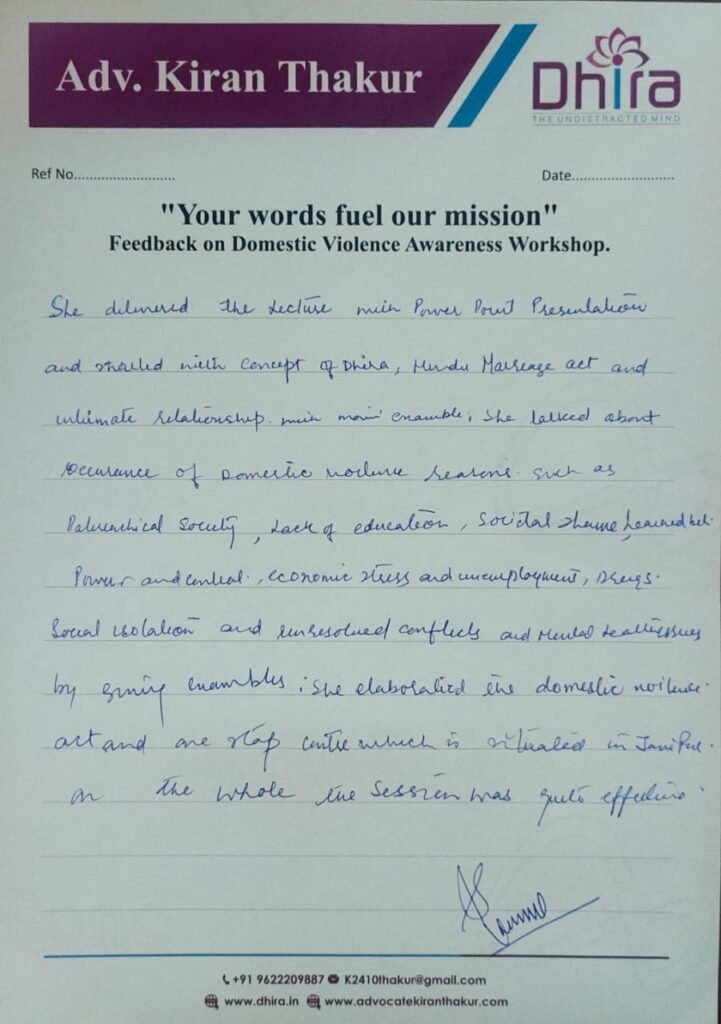 Adv. Kiran Thakur
Dhira
THE UNDISTRACTED MIND
Ref No..........................
Date..........................
"Your words fuel our mission"
Feedback on Domestic Violence Awareness Workshop.
She delivered the Lecture with Power Point Presentation
and started with concept of Dhira, Hindu Marreage act and
intimate relationship. with more examble; She talked about
Occurance of Domestic violence reasons such as
Patriarchical Society, Lack of education, Societal shame, Learned bel.
Power and control, economic stress and unemployment, Drugs.
Social isolation and unresolved conflicts and Mental Healthissues
by giving exambles; She elaborated the domestic voilence
act and one stop centre which is situated in
on the whole the Session was quite effective.
+91 9622209887 K2410thakur@gmail.com
www.dhira.in www.advocatekiranthakur.com